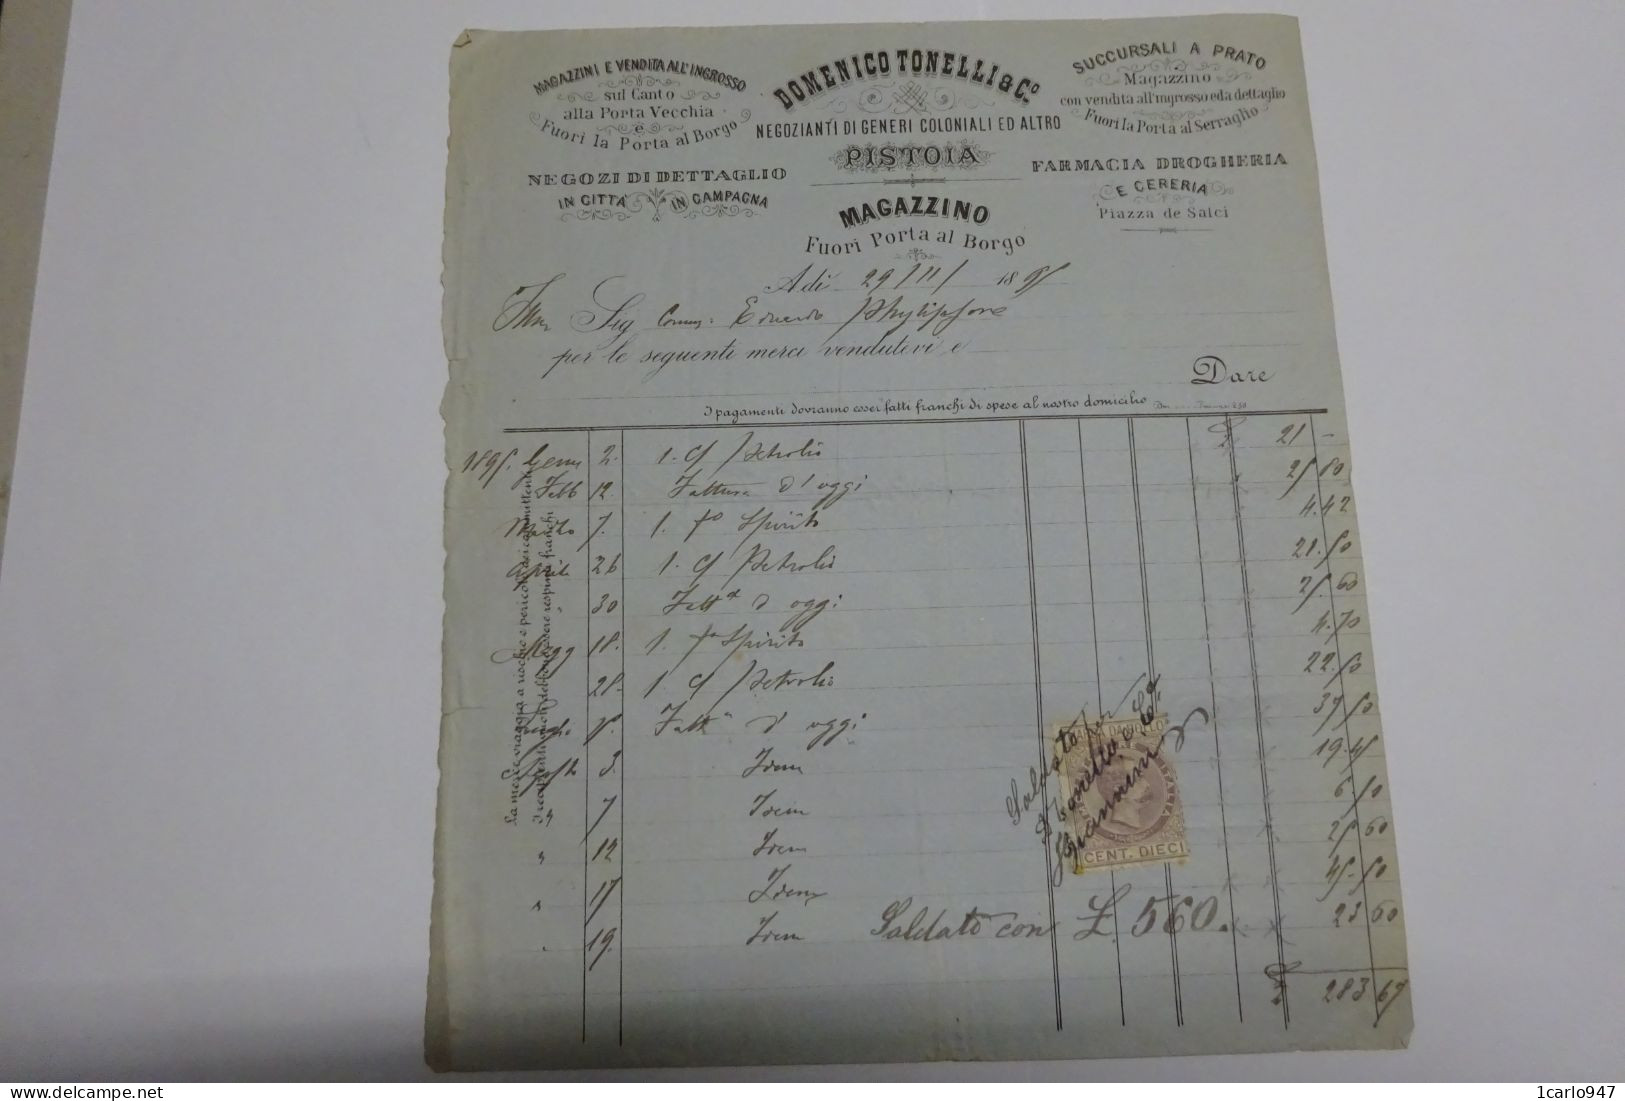 MAGAZZINI E VENDITA ALL'INGROSSO
sul Canto
alla Porta Vecchia
e
Fuori la Porta al Borgo
NEGOZI DI DETTAGLIO
IN CITTÀ IN CAMPAGNA
DOMENICO TONELLI & C.º
NEGOZIANTI DI GENERI COLONIALI ED ALTRO
PISTOIA
MAGAZZINO
Fuori Porta al Borgo
SUCCURSALI A PRATO
Magazzino
con vendita all'ingrosso ed a dettaglio
Fuori la Porta al Serraglio
FARMACIA DROGHERIA
E CERERIA
Piazza de Salci
Adì 29/11/ 1895
Sig Eduardo
per le seguenti merci vendutevi e
Dare
I pagamenti dovranno esser fatti franchi di spese al nostro domicilio
1895. Genn 2. 1. C/ Petrolio £ 21 -
Febb 12. Fattura d'oggi 25 80
Marzo 7. 1. fo Spirito 4.42
Aprile 26 1 C/ Petrolio 21.50
" 30 Fatta d'oggi 25.60
Magg 18. 1. fo Spirito 4.70
28- 1 C/ Petrolio 22.50
Fatta d'oggi 37 50
3. Idem 19.45
" 7 Idem 6 50
" 12 Idem 25 60
" 17 Idem 45.50
" 19. Idem 23 60
Saldato con £ 560.
£ 283 67
La merce viaggia a rischio e pericolo dei committenti
Saldato
Tonelli e Co
Giannini
DA BOLLO
ITALIA
CENT. DIECI
1carlo947
delcampe.net